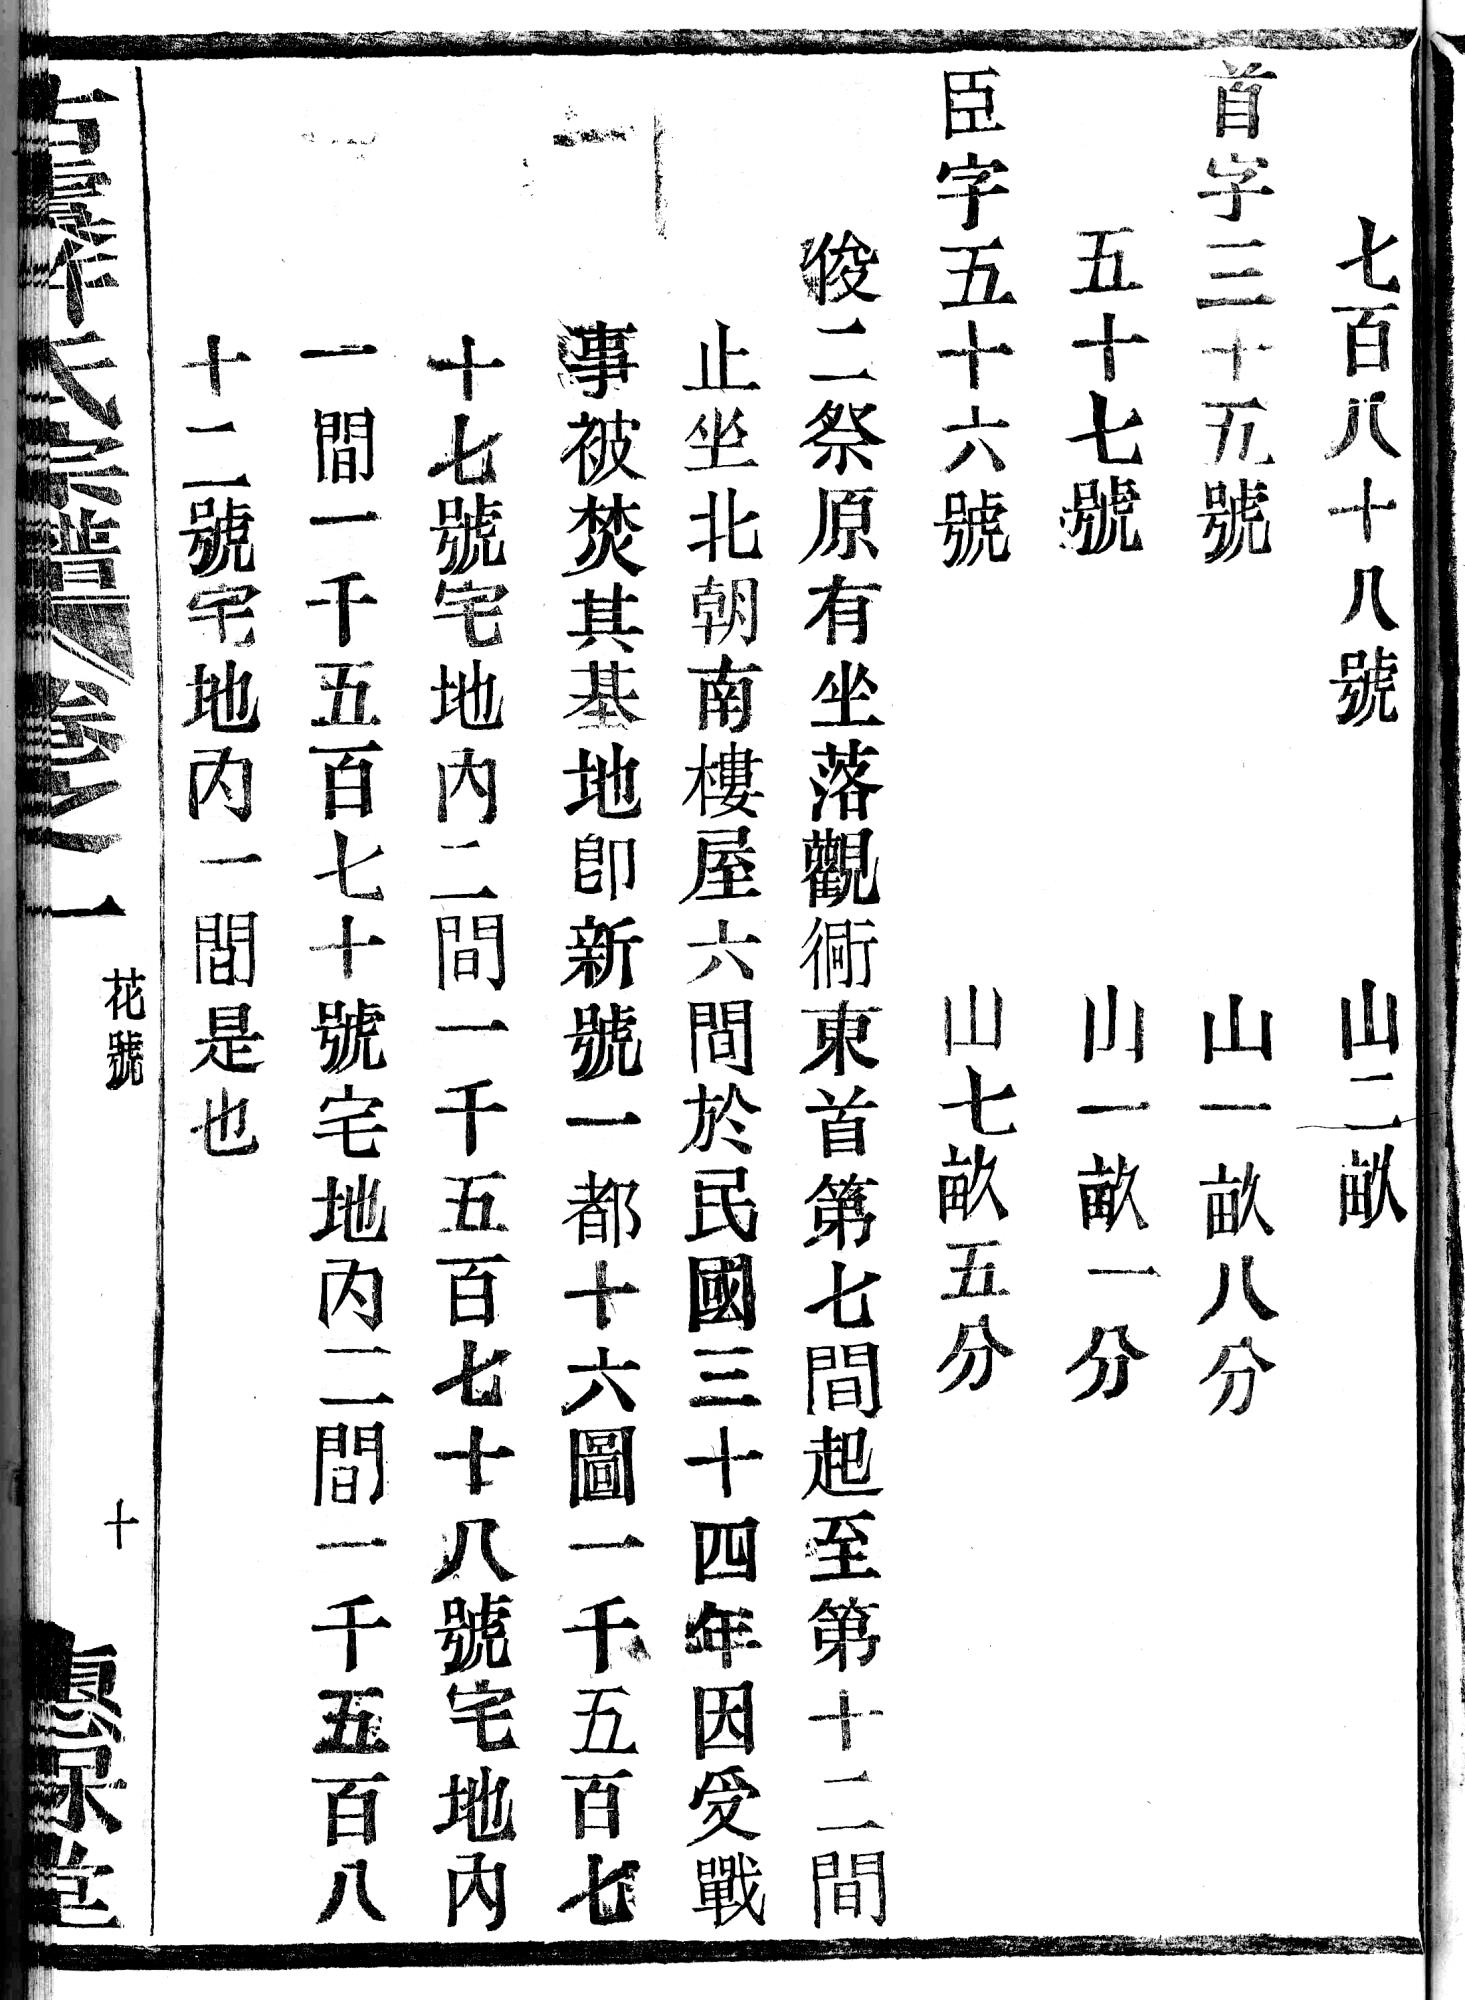 七百八十八號　山二畝
首字三十五號　山一畝八分
五十七號　山一畝一分
臣字五十六號　山七畝五分
俊二祭原有坐落觀衕東首第七間起至第十二間
止坐北朝南樓屋六間於民國三十四年因受戰
事被焚其基地卽新號一都十六圖一千五百七
十七號宅地內二間一千五百七十八號宅地內
一間一千五百七十號宅地内二間一千五百八
十二號宅地内一間是也
氏宗譜卷之一
花號
十
堂